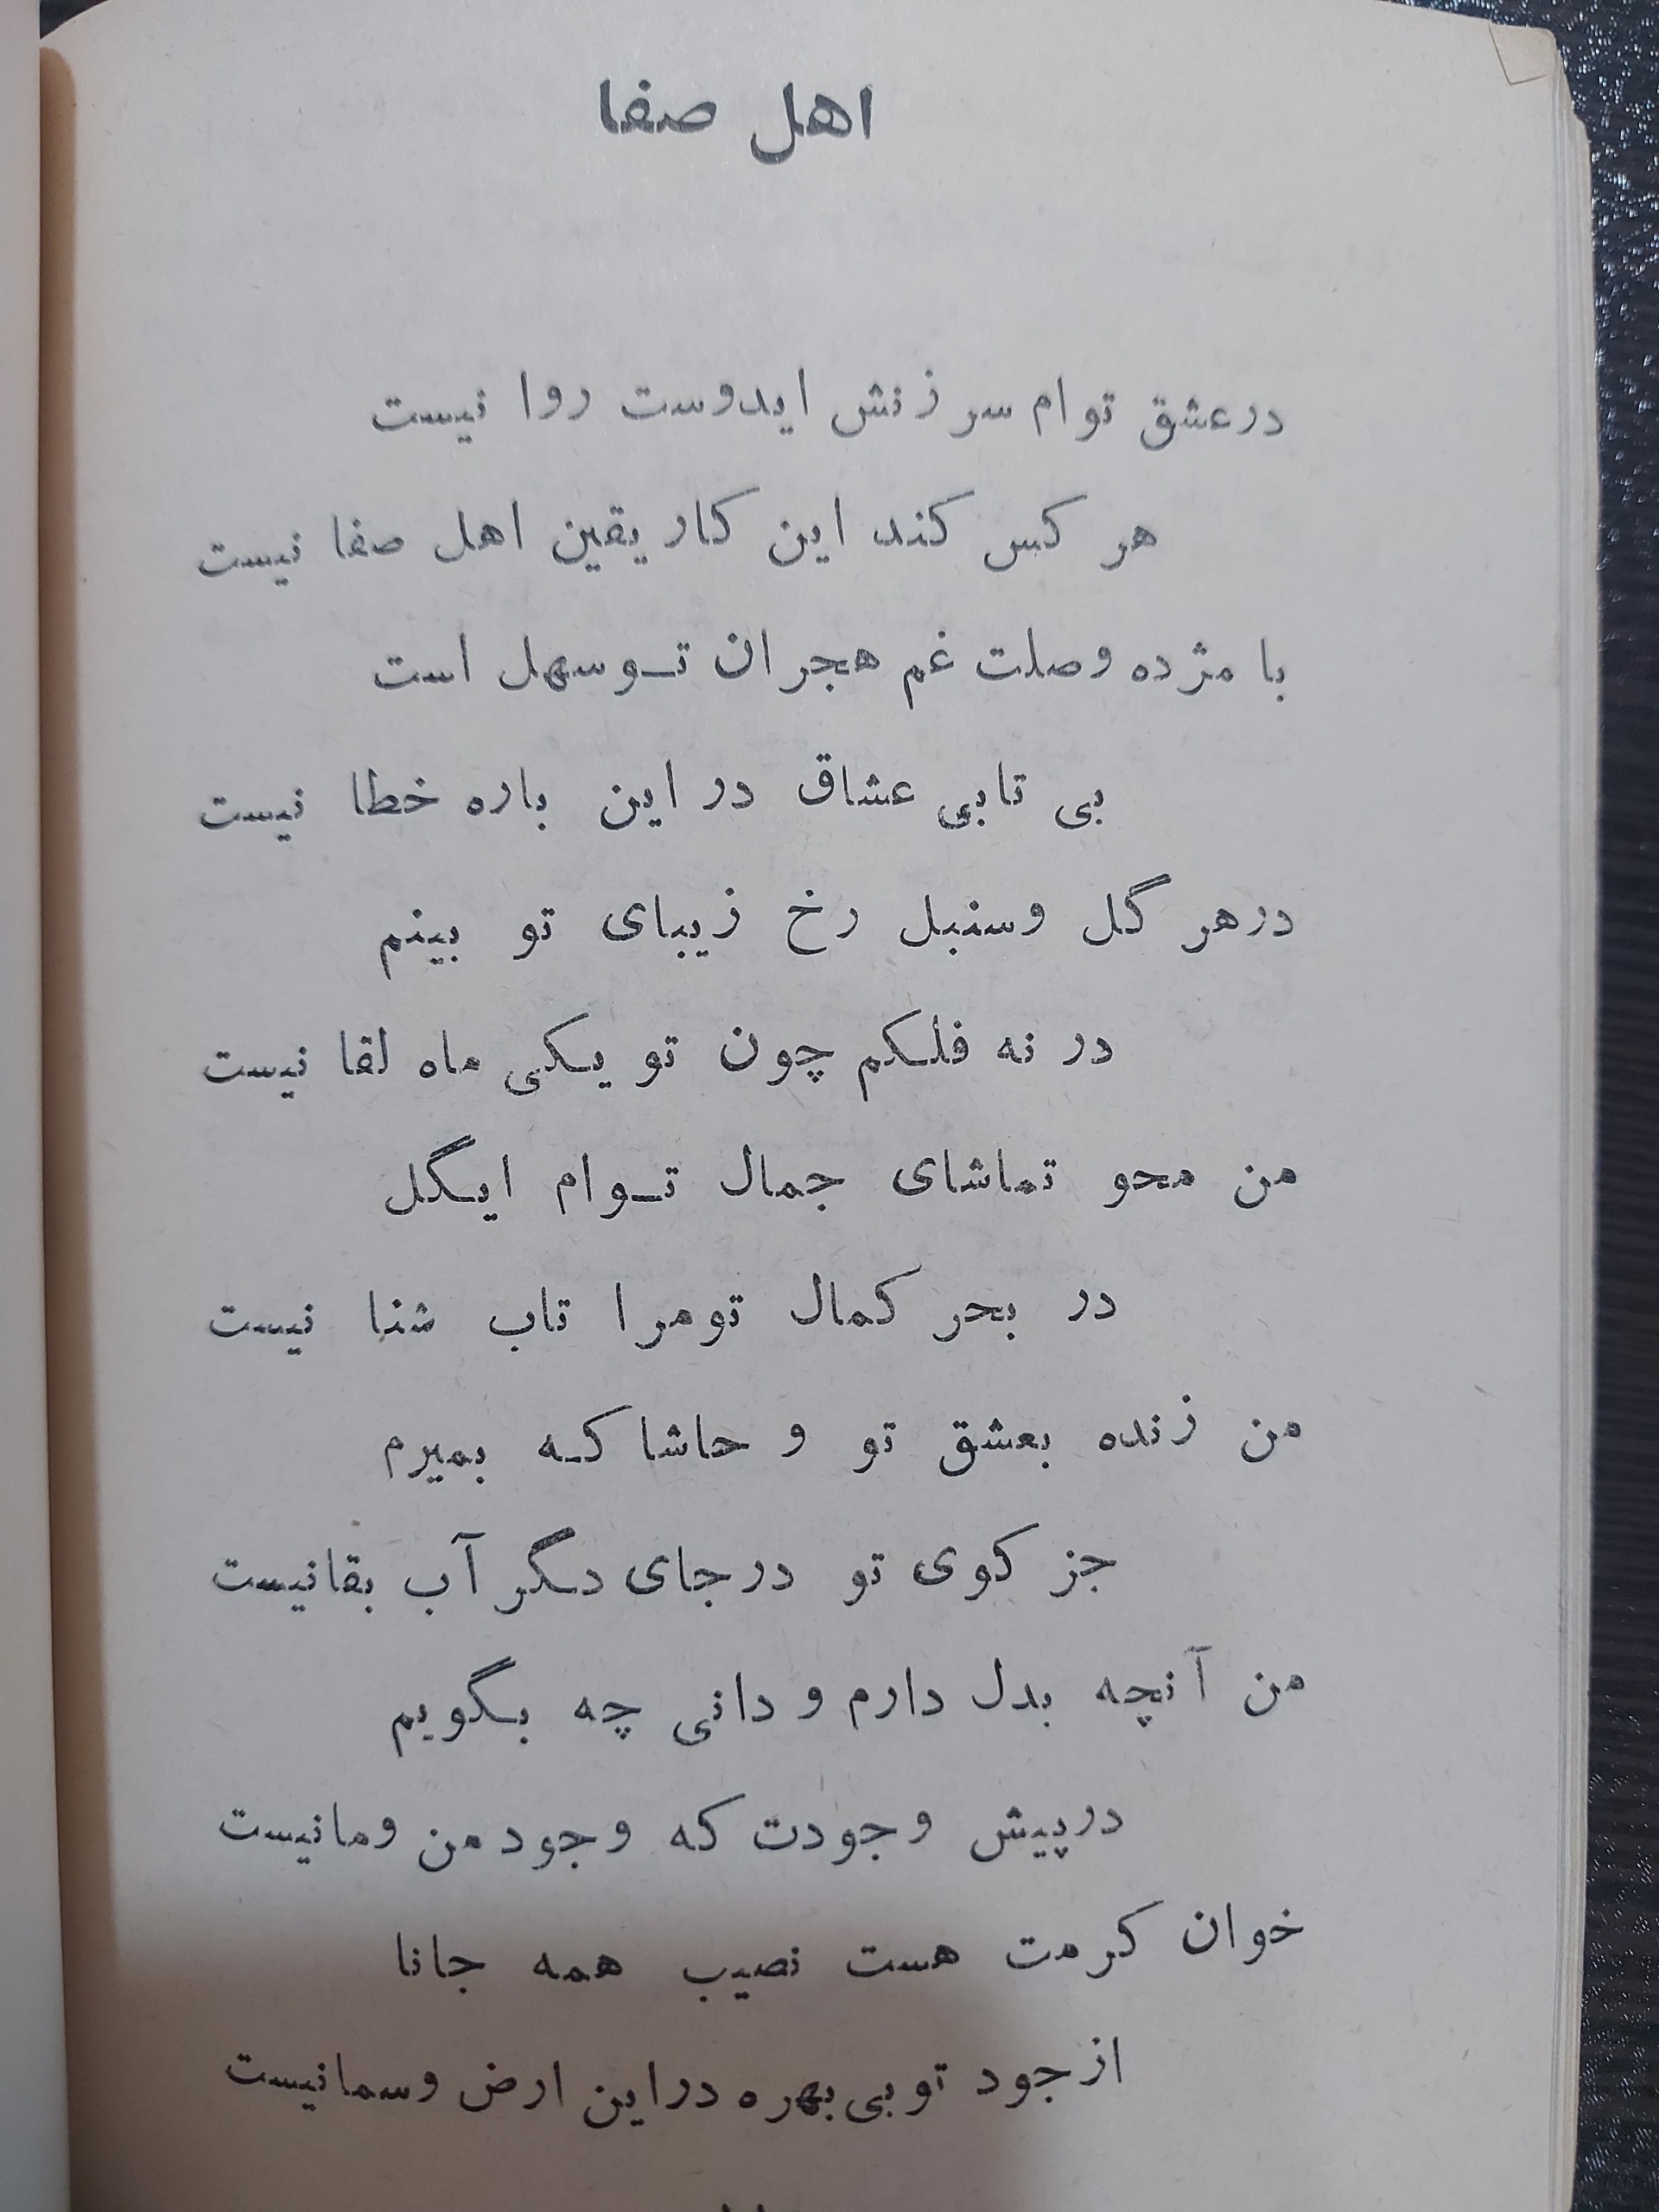 اهل صفا
درعشق توام سرزنش ایدوست روا نیست
هر کس کند این کار یقین اهل صفا نیست
با مژده وصلت غم هجران تـو سهل است
بی تابی عشاق در این باره خطا نیست
درهر گل وسنبل رخ زیبای تو بینم
در نه فلکم چون تو یکی ماه لقا نیست
من محو تماشای جمال تـوام ایگل
در بحر کمال تومرا تاب شنا نیست
من زنده بعشق تو و حاشا که بمیرم
جز کوی تو درجای دگر آب بقانیست
من آنچه بدل دارم و دانی چه بگویم
درپیش وجودت که وجود من ومانیست
خوان کرمت هست نصیب همه جانا
ازجود توبی‌بهره دراین ارض وسمانیست